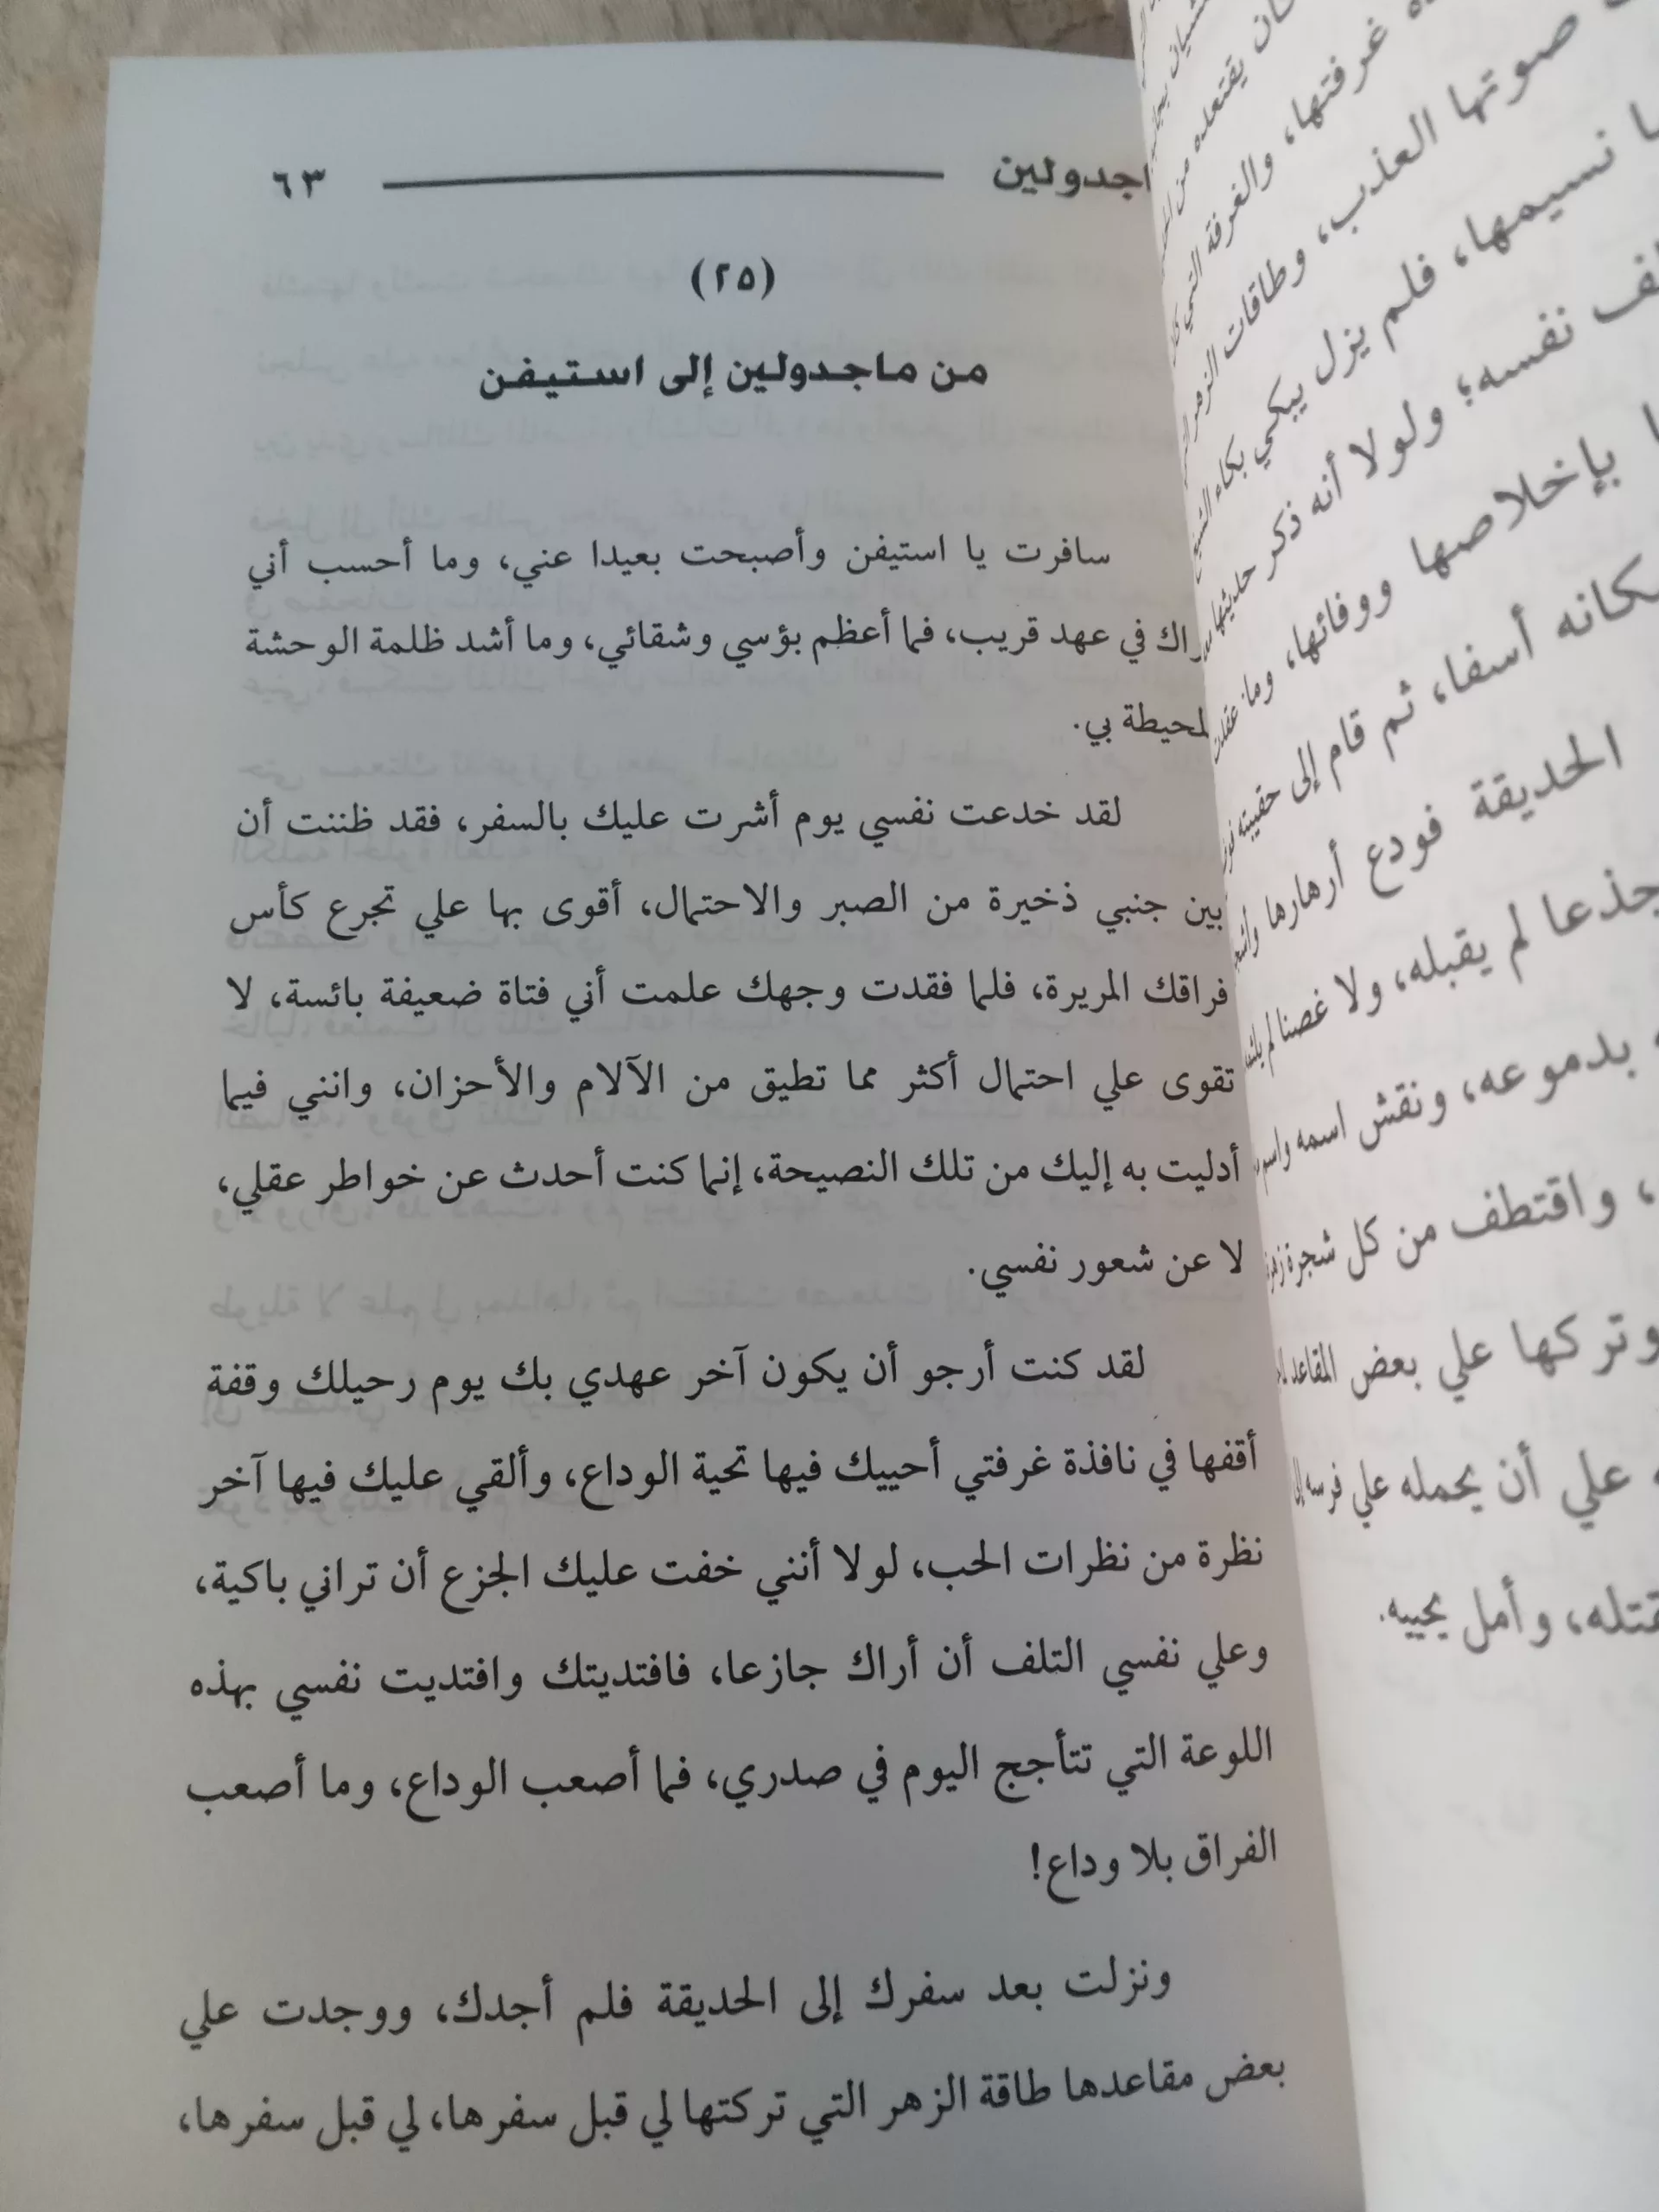 يقتعده من
غرفتها، والغرفة التي
صوتها العذب، وطاقات الزهر
نسيمها، فلم يزل يبكي بكاء
نفسه؛ ولولا أنه ذكر حديثها
بإخلاصها ووفائها، وما
أسفا، ثم قام إلى حقيبته
الحديقة فودع أرهارها
جذعا لم يقبله، ولا غصنا لم
بدموعه، ونقش اسمه
، واقتطف من كل شجرة
وتركها علي بعض المقاعد
علي أن يحمله علي فرسه إلى
وأمل يحييه.
اجدولين ٦٣
(٢٥)
من ماجدولين إلى استيفن
سافرت يا استيفن وأصبحت بعيدا عني، وما أحسب أني
راك في عهد قريب، فما أعظم بؤسي وشقائي، وما أشد ظلمة الوحشة
لمحيطة بي.
لقد خدعت نفسي يوم أشرت عليك بالسفر، فقد ظننت أن
بين جنبي ذخيرة من الصبر والاحتمال، أقوى بها علي تجرع كأس
فراقك المريرة، فلما فقدت وجهك علمت أني فتاة ضعيفة بائسة، لا
تقوى علي احتمال أكثر مما تطيق من الآلام والأحزان، وانني فيما
أدليت به إليك من تلك النصيحة، إنما كنت أحدث عن خواطر عقلي،
لا عن شعور نفسي.
لقد كنت أرجو أن يكون آخر عهدي بك يوم رحيلك وقفة
أقفها في نافذة غرفتي أحييك فيها تحية الوداع، وألقي عليك فيها آخر
نظرة من نظرات الحب، لولا أنني خفت عليك الجزع أن تراني باكية،
وعلي نفسي التلف أن أراك جازعا، فافتديتك وافتديت نفسي بهذه
اللوعة التي تتأجج اليوم في صدري، فما أصعب الوداع، وما أصعب
الفراق بلا وداع!
ونزلت بعد سفرك إلى الحديقة فلم أجدك، ووجدت علي
بعض مقاعدها طاقة الزهر التي تركتها لي قبل سفرها، لي قبل سفرها،